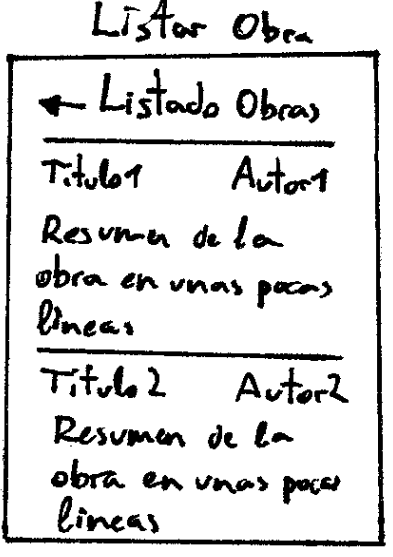 Listar Obra
Listado Obras
Titulo1 Autor1
Resumen de la
obra en unas pocas
lineas
Titulo2 Autor2
Resumen de la
obra en unas pocas
lineas